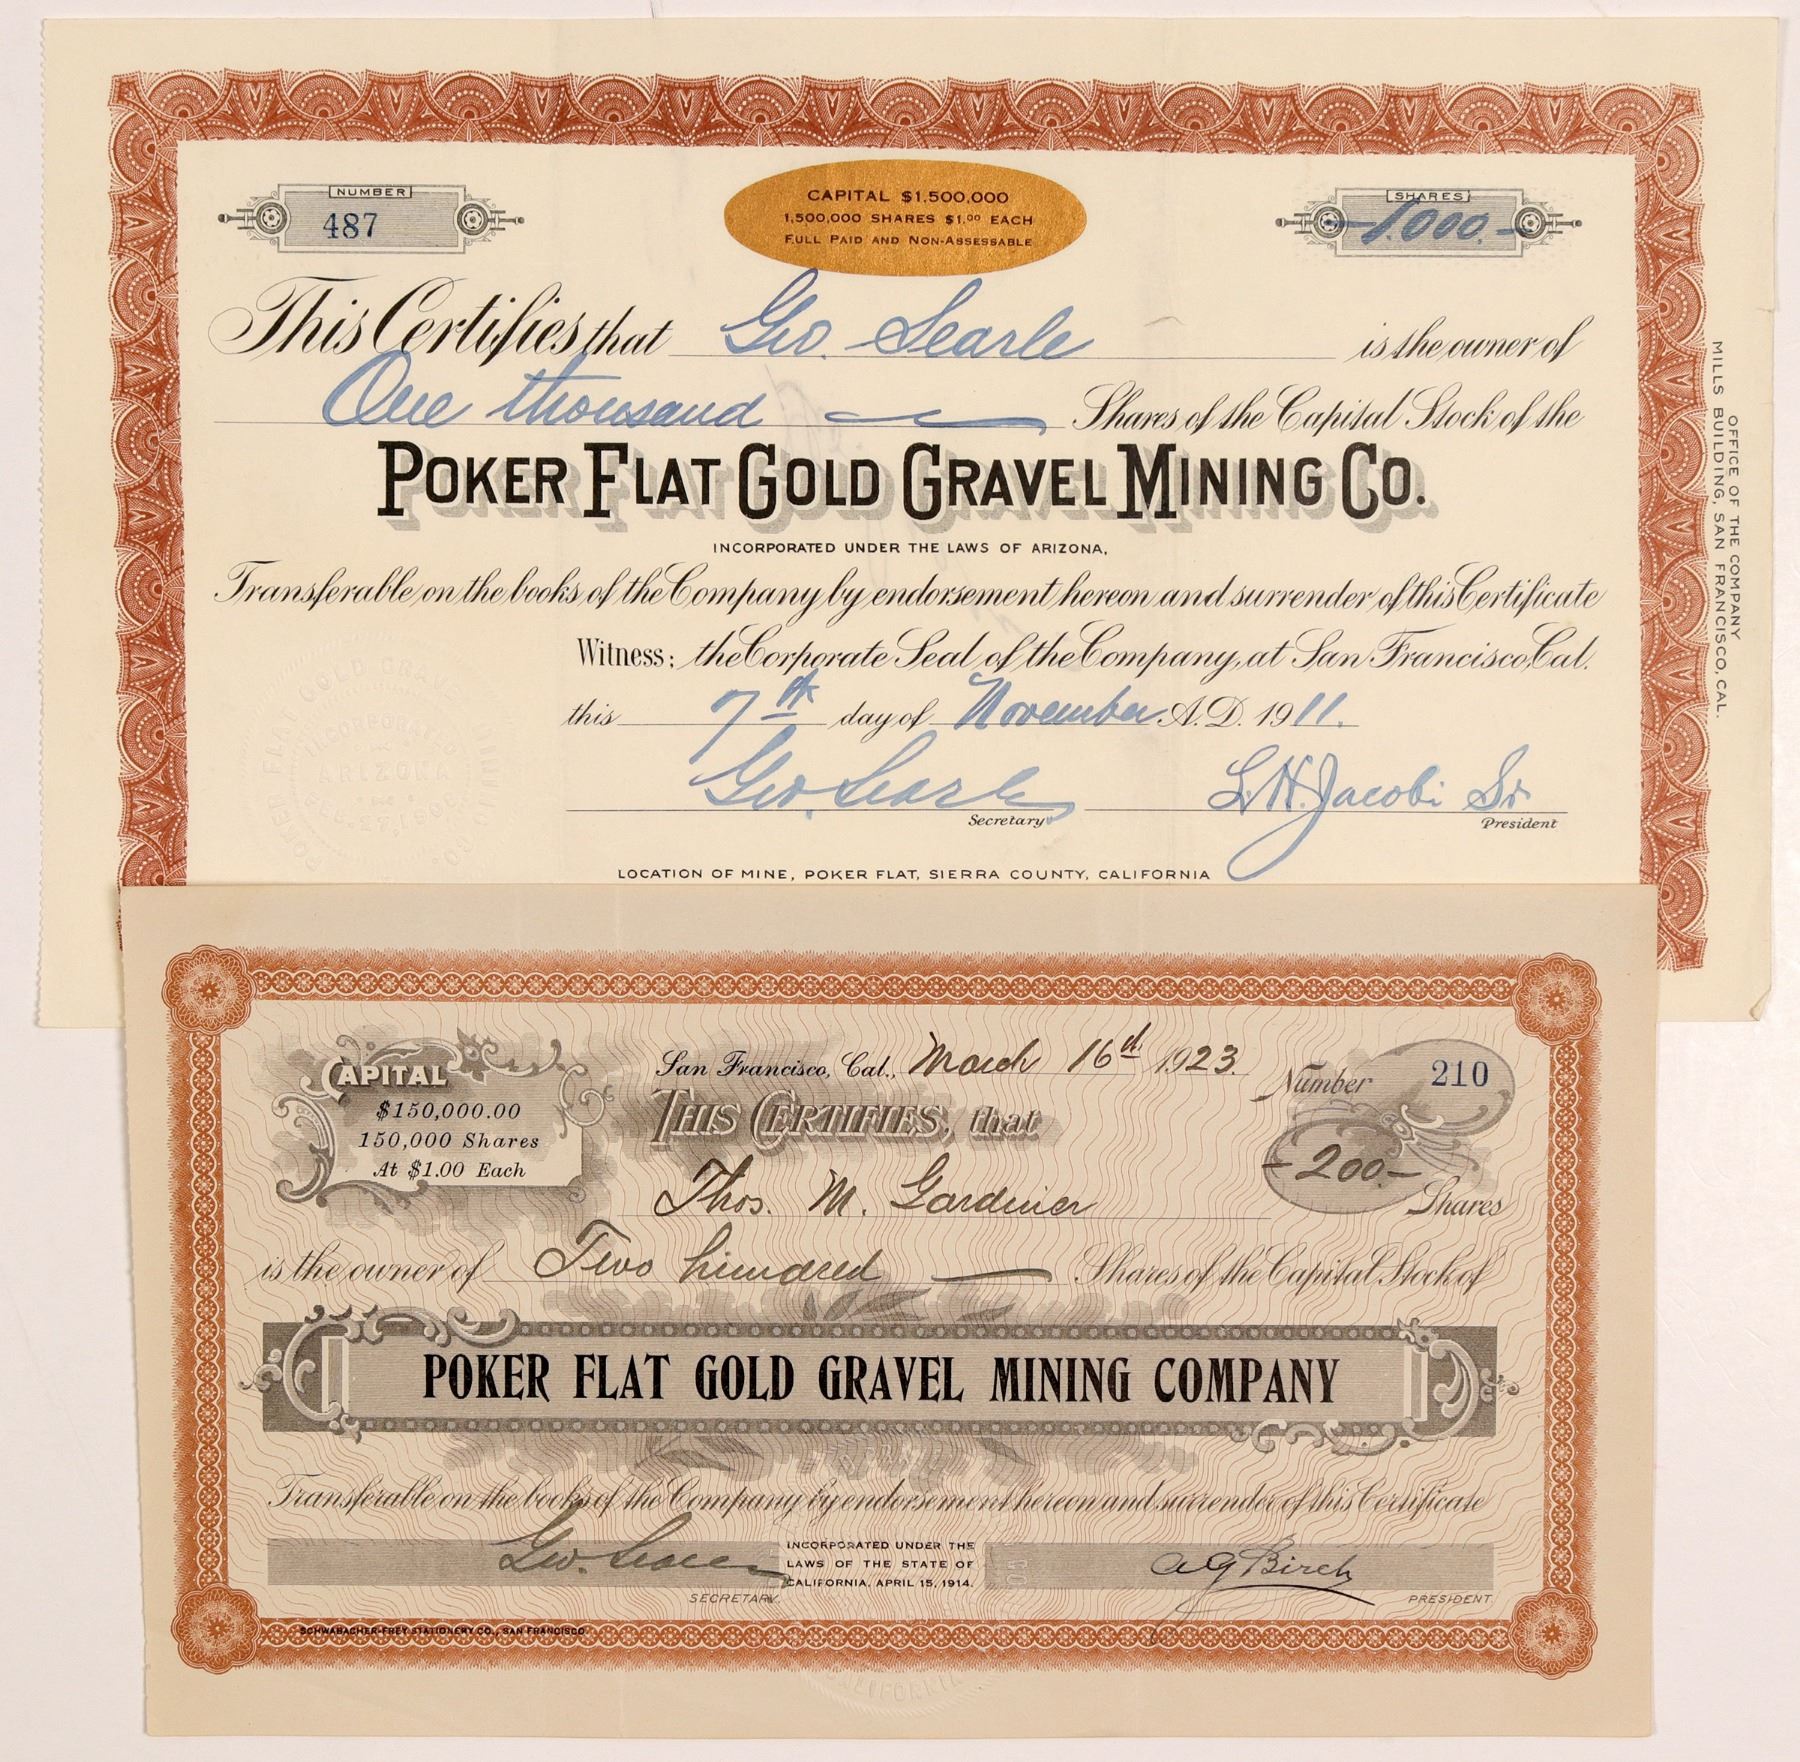 NUMBER
487
CAPITAL $1,500,000
1,500,000 SHARES $1.00 EACH
FULL PAID AND NON-ASSESSABLE
SHARES
-1.000.-
This Certifies that Geo. Searle is the owner of
One thousand Shares of the Capital Stock of the
POKER FLAT GOLD GRAVEL MINING CO.
INCORPORATED UNDER THE LAWS OF ARIZONA,
Transferable on the books of the Company by endorsement hereon and surrender of this Certificate
Witness; the Corporate Seal of the Company, at San Francisco, Cal.
this 7th day of November A.D. 1911.
Geo. Searle L.H. Jacobi Sr
Secretary President
LOCATION OF MINE, POKER FLAT, SIERRA COUNTY, CALIFORNIA
OFFICE OF THE COMPANY
MILLS BUILDING, SAN FRANCISCO, CAL.
POKER FLAT GOLD GRAVEL MINING CO.
INCORPORATED
ARIZONA
CAPITAL
$150,000.00
150,000 Shares
At $1.00 Each
San Francisco, Cal., March 16th 1923.
Number 210
THIS CERTIFIES, that
-200.-
Shares
Thos. M. Gardiner
is the owner of Two hundred Shares of the Capital Stock of
POKER FLAT GOLD GRAVEL MINING COMPANY
Transferable on the books of the Company by endorsement hereon and surrender of this Certificate
Geo. Searle
INCORPORATED UNDER THE
LAWS OF THE STATE OF
CALIFORNIA, APRIL 15, 1914.
A G Birch
SECRETARY. PRESIDENT.
SCHWABACHER-FREY STATIONERY CO., SAN FRANCISCO
CALIFORNIA